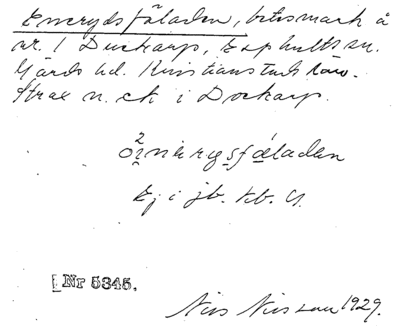 Enerydsfäladen, betesmark å
nr. 1 Duckarp, Esphults sn.
Gärds hd. Kristianstads län.
Strax n. ck i Dockarp.
Ej i jb. kb. G.
[ Nr 5345.
Nils Nilsson 1929.